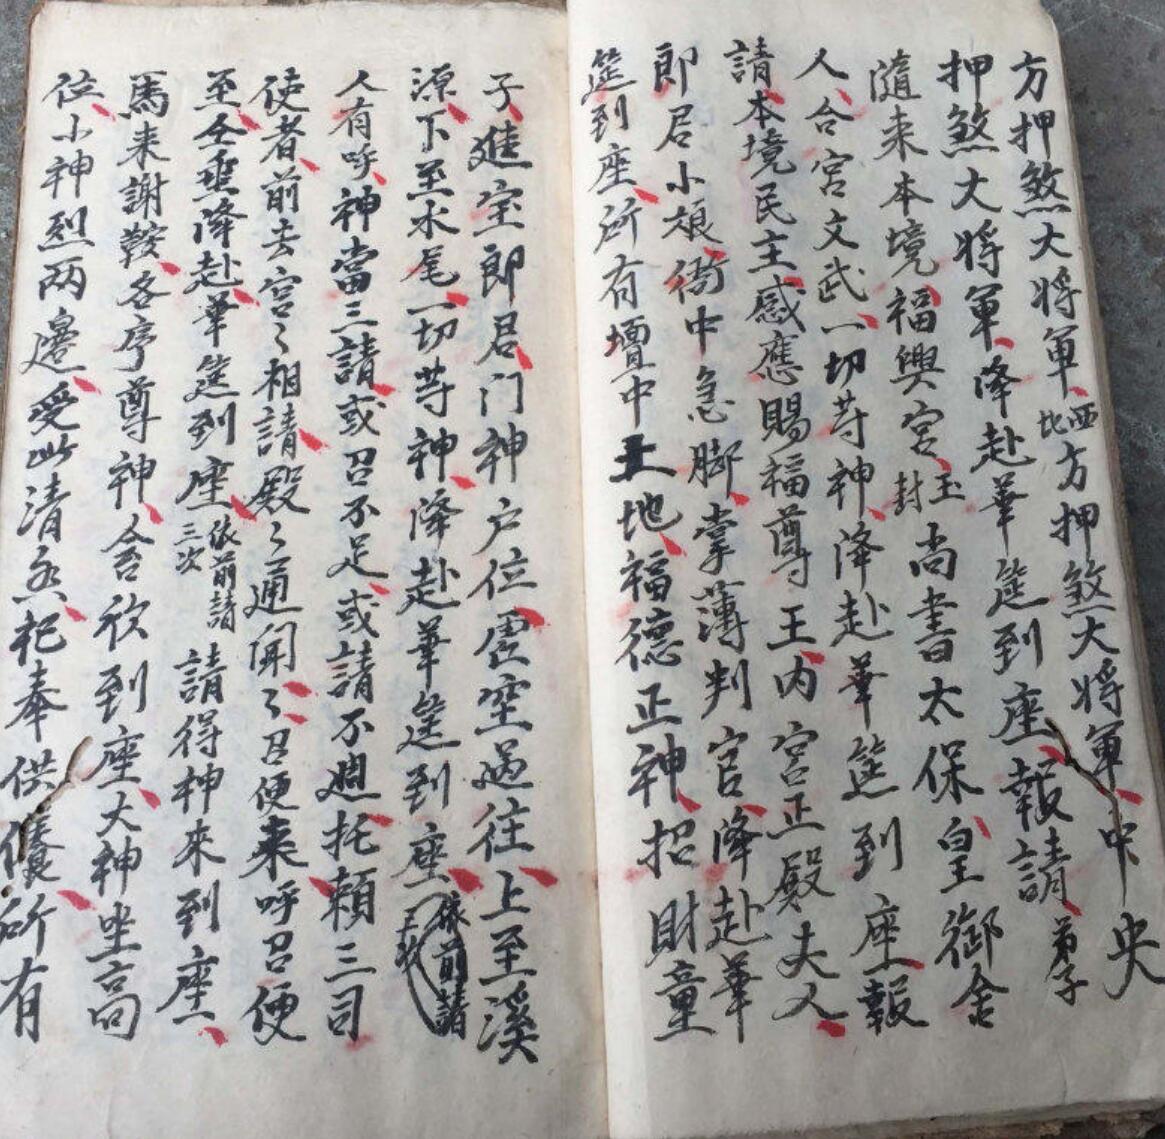 方押煞大将軍西北方押煞大将軍中央
押煞大将軍降赴華筵到座報請弟子
隨来本境福興宮玉封尚書太保皇御舍
人合宮文武一切荨神降赴華筵到座報
請本境民主感應賜福尊王内宮正殿夫人
郎君小娘衙中急脚掌薄判官降赴華
筵到座所有壇中土地福德正神招財童
子進宝郎君门神户位雲空過往上至溪
源下至水尾一切荨神降赴華筵到座依前請三次
人有呼神當三請或召不足或請不週托賴三司
使者前去宮〻相請殿〻通聞〻召便来呼召便
至仝垂降赴華筵到座依前請三次請得神来到座
馬来謝鞍各序尊神合欣到座大神坐高
位小神烈两邊受此清杞奉供儀所有